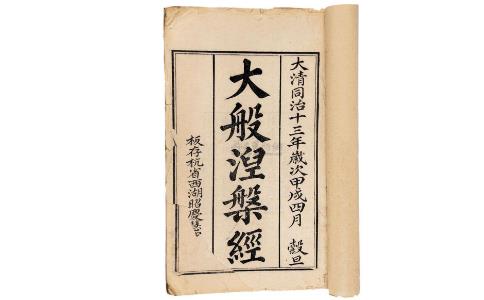 大清同治十三年歲次甲戌四月 穀旦
大般涅槃經
板存杭省西湖昭慶